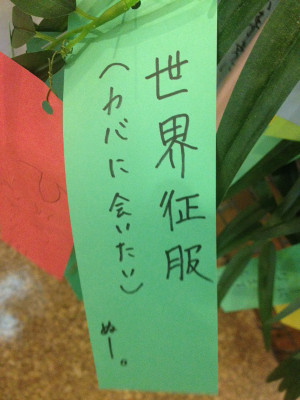 世界征服
(カバに会いたい)
ぬー。